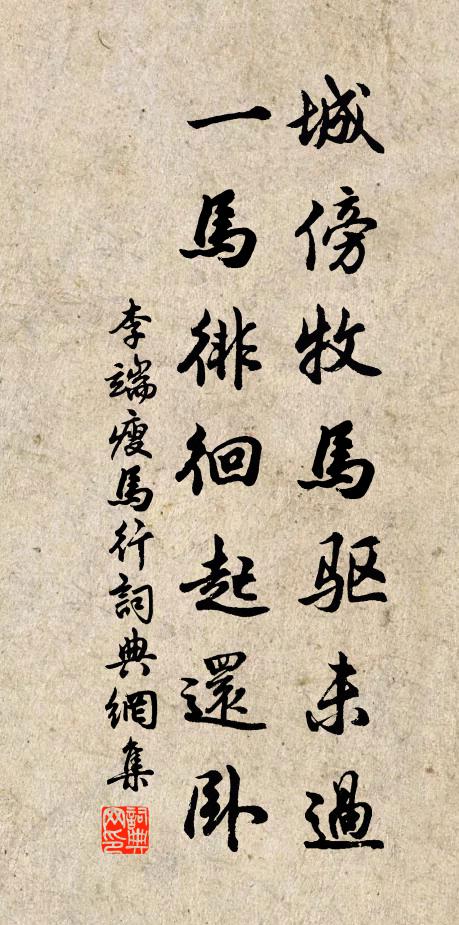 城傍牧馬驱未過
一馬徘徊起還卧
李端瘦馬行詞典網集
詞典网印